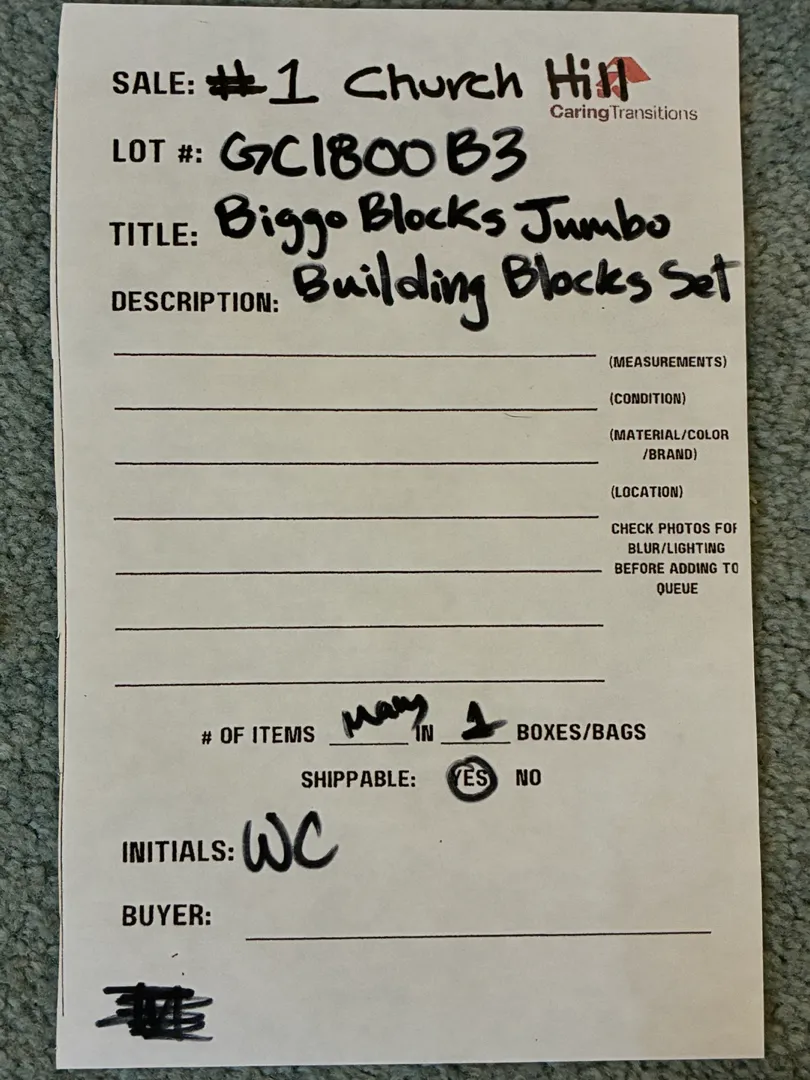 SALE: #1 Church Hill
CaringTransitions
LOT #: GC1800B3
TITLE: Biggo Blocks Jumbo
Building Blocks Set
DESCRIPTION:
(MEASUREMENTS)
(CONDITION)
(MATERIAL/COLOR
/BRAND)
(LOCATION)
CHECK PHOTOS FOR
BLUR/LIGHTING
BEFORE ADDING TO
QUEUE
# OF ITEMS Many IN 1 BOXES/BAGS
SHIPPABLE: YES NO
INITIALS: WC
BUYER: